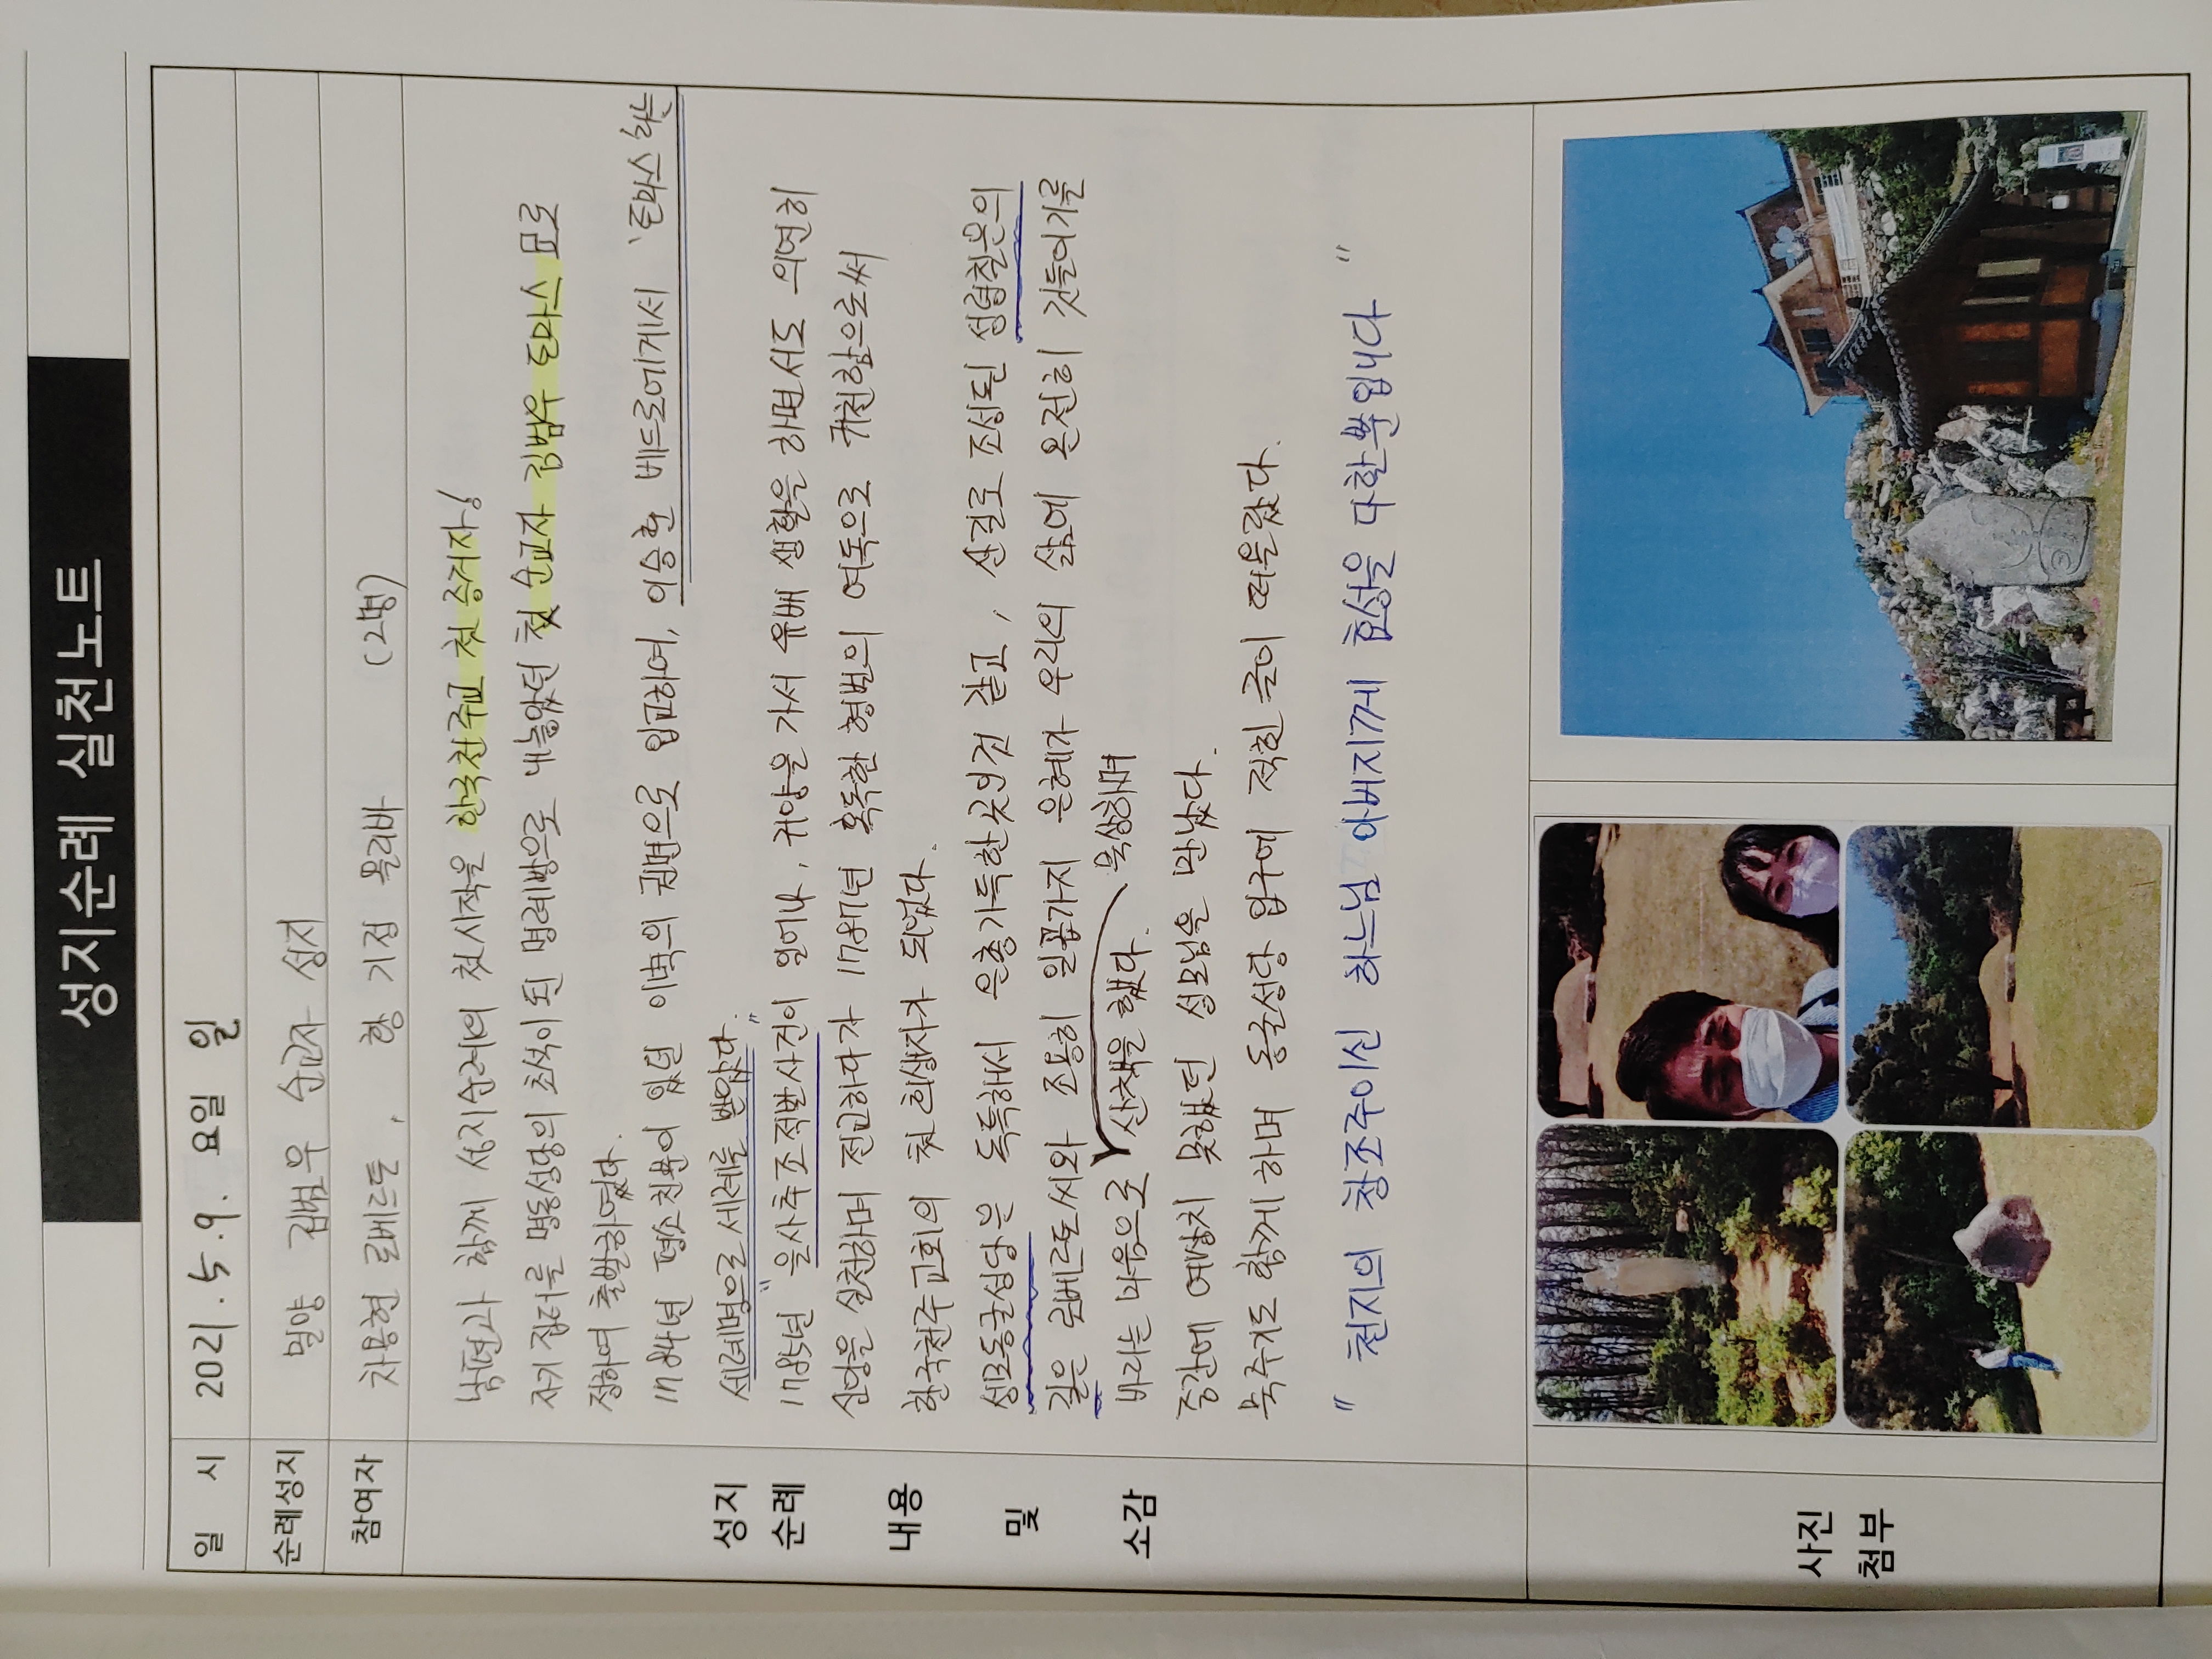 성지순례 실천노트
일 시 2021. 5. 9. 요일 일
순례성지 밀양 김범우 순교자 성지
참여자 차용현 로베르토, 황기점 몰리바 (2명)
남편과 함께 성지순례의 첫 시작을 한국천주교 첫 증거자!
자기 집터를 명동성당의 초석이 된 명례방으로 내놓았던 첫 순교자 김범우 토마스 묘로
정하여 출발하였다.
1784년 평소 친분이 있던 이벽의 권면으로 입교하여, 이승훈 베드로에게서 '토마스'라는
세례명으로 세례를 받았다.
1785년 "을사추조적발사건"이 일어나, 귀양을 가서 유배 생활을 하면서도 의연히
신앙을 실천하며 전교하다가 1787년 혹독한 형벌의 여독으로 귀천함으로써
한국천주교회의 첫 희생자가 되었다.
성모동굴성당은 독특해서 은총가득한곳인것 같고, 산길로 조성된 성령칠은의
길은 로베르토씨와 조용히 일곱가지 은혜가 우리의 삶에 온전히 깃들이기를
바라는 마음으로 산책을 했다. 묵상하며
중간에 예상치 못했던 성모님을 만났다.
묵주기도 함께 하며 동굴성당 입구에 적힌 글이 떠올랐다.
" 천지의 창조주이신 하느님 아버지께 효성을 다한분입니다 "
성지
순례
내용
및
소감
사진
첨부